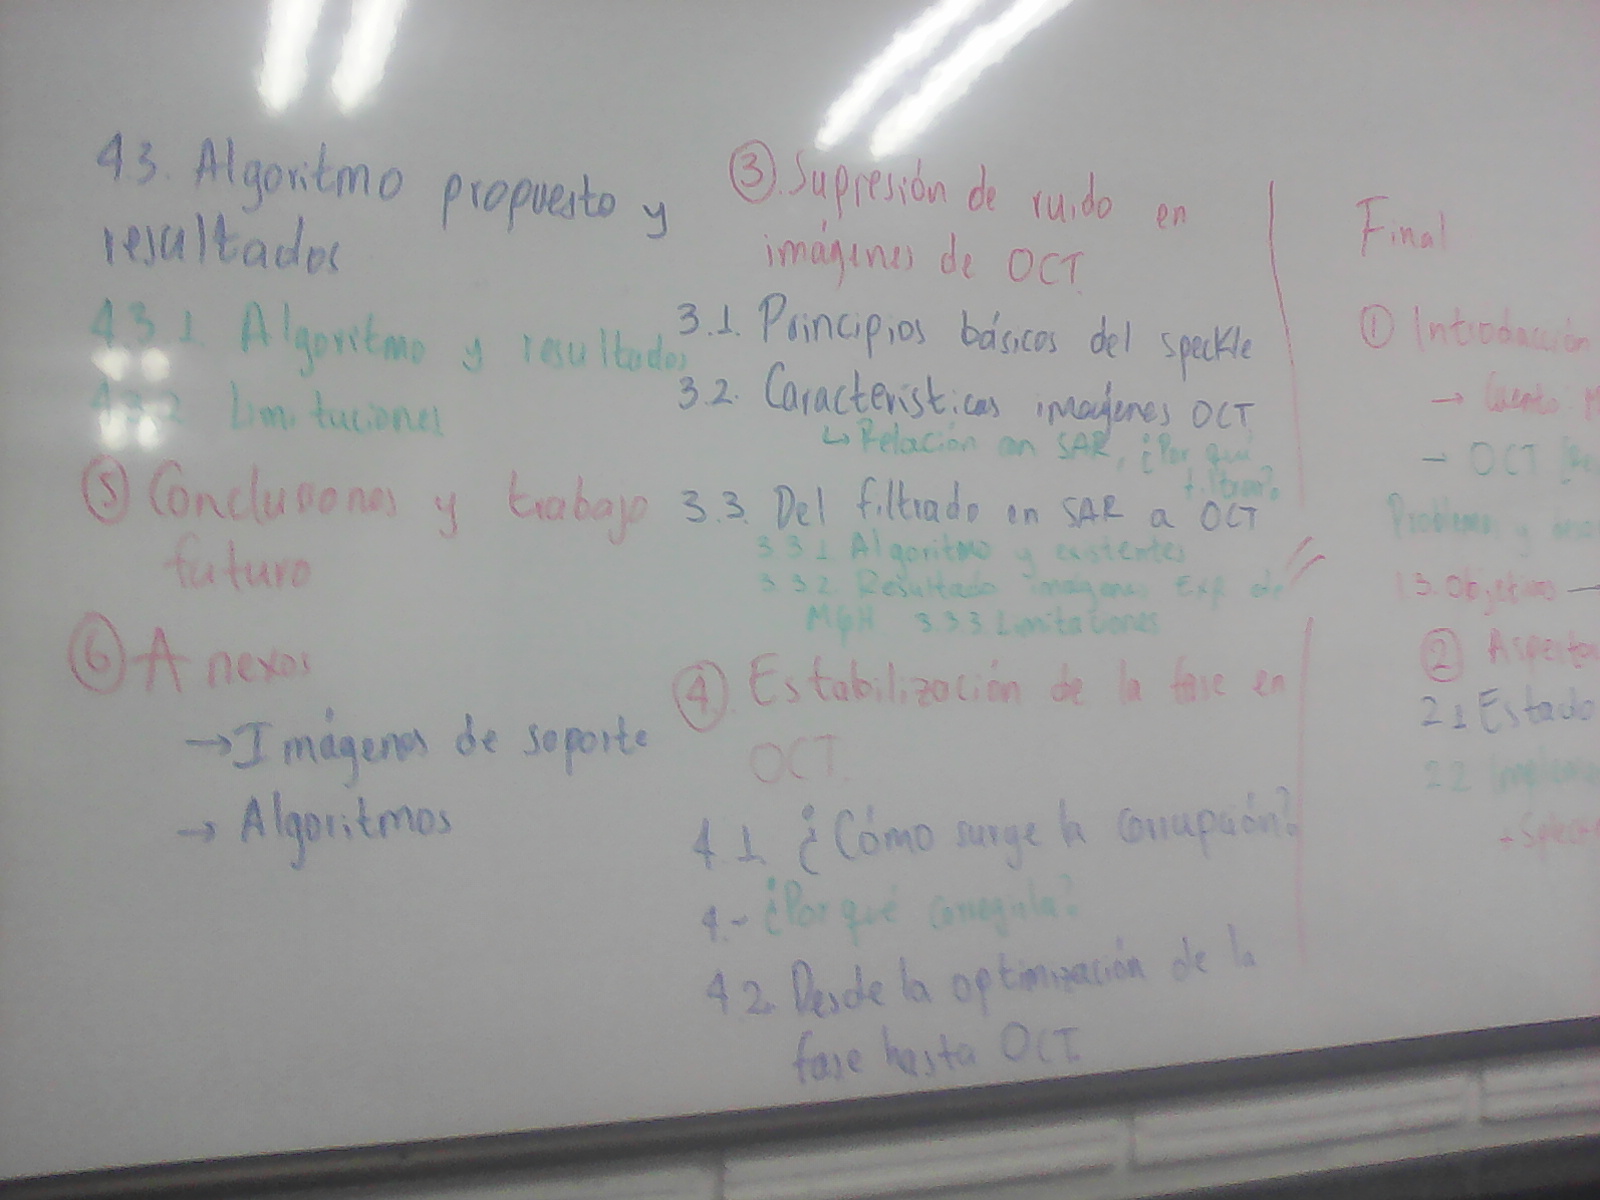 4.3. Algoritmo propuesto y
resultados
4.3.1. Algoritmo y resultados
4.3.2 Limitaciones
⑤ Conclusiones y trabajo
futuro
⑥ Anexos
→ Imágenes de soporte
→ Algoritmos
③. Supresión de ruido en
imágenes de OCT.
3.1. Principios básicos del speckle
3.2. Características imágenes OCT
↳ Relación con SAR, ¿Por qué
filtrar?
3.3. Del filtrado en SAR a OCT
3.3.1 Algoritmo y existentes
3.3.2 Resultado imágenes Exp de
MGH 3.3.3 Limitaciones
④. Estabilización de la fase en
OCT.
4.1. ¿Cómo surge la corrupción?
4.- ¿Por qué corregirla?
4.2. Desde la optimización de la
fase hasta OCT.
Final
① Introducción
→
→ OCT
Problema y
1.3. Objetivos →
②
2.1 Estado
2.2